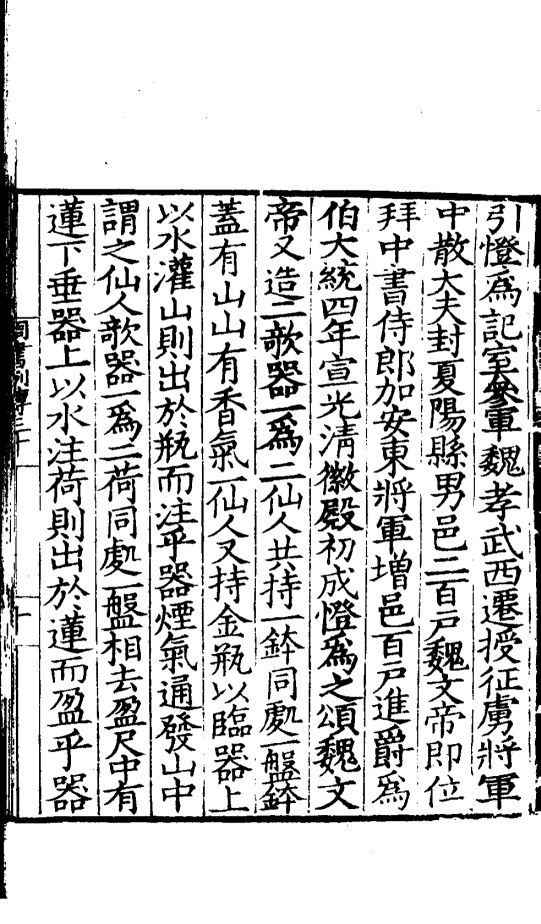 引憕爲記室叅軍魏孝武西遷授征虜將軍
中散大夫封夏陽縣男邑二百戶魏文帝即位
拜中書侍郎加安東將軍增邑百戶進爵爲
伯大統四年宣光清徽殿初成憕爲之頌魏文
帝又造二欹器一爲二仙人共持一鉢同處一盤鉢
蓋有山山有香氣一仙人又持金瓶以臨器上
以水灌山則出於瓶而注乎器煙氣通發山中
謂之仙人欹器一爲二荷同處一盤相去盈尺中有
蓮下垂器上以水注荷則出於蓮而盈乎器
周書列傳三十
十